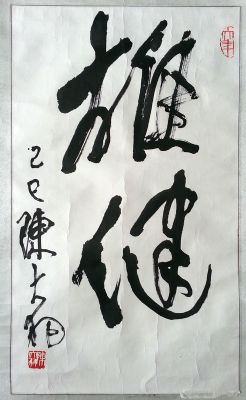 雄健
己巳陳大羽